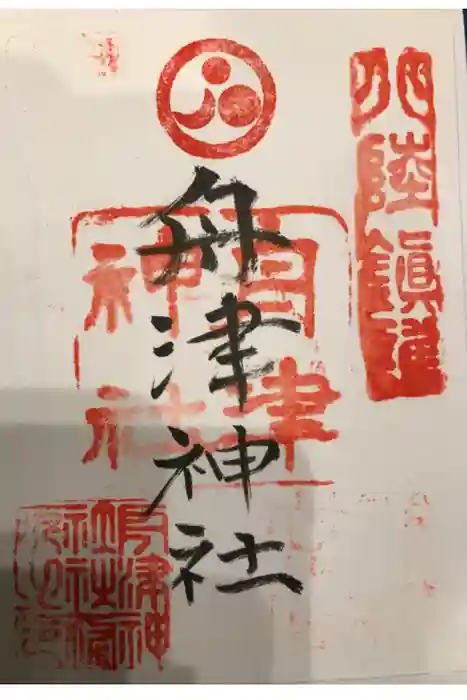 北陸鎭護
舟津神社
舟津
神社
舟津神
社社務
所之印